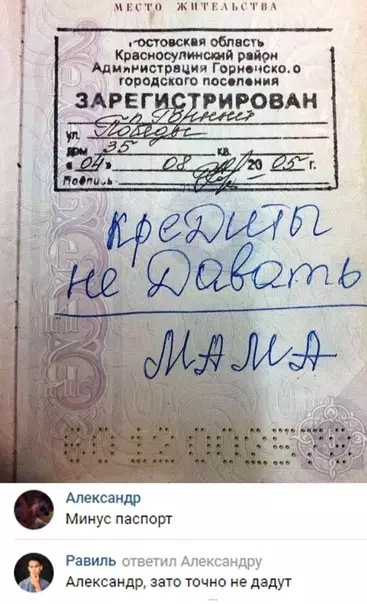 МЕСТО ЖИТЕЛЬСТВА
Ростовская область
Красносулинский район
Администрация Горненско.о
городского поселения
ЗАРЕГИСТРИРОВАН
п. Горный
ул. Победы
дом 35 кв.
«04» 08 2005 г.
Подпись
кредиты
не давать
МАМА
Александр
Минус паспорт
Равиль ответил Александру
Александр, зато точно не дадут